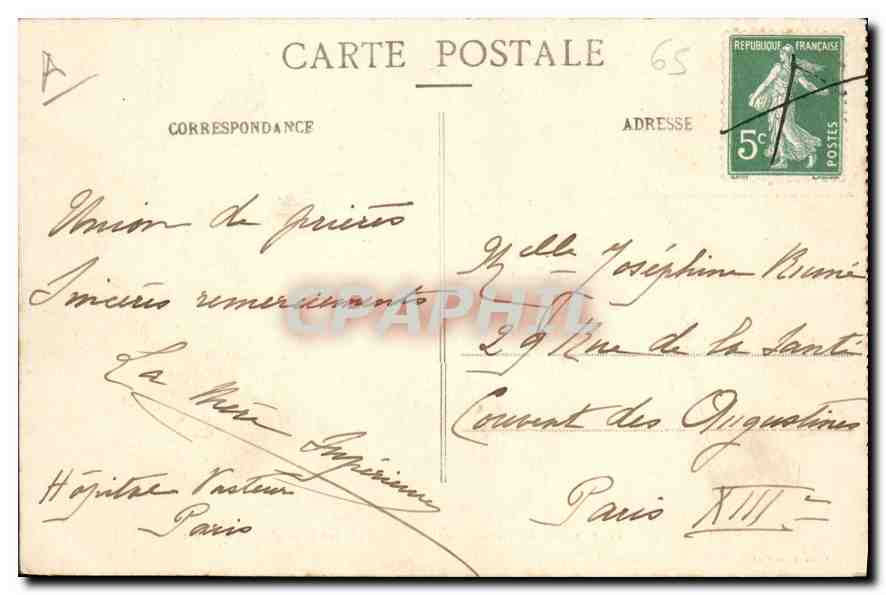 A
CARTE POSTALE
65
REPUBLIQUE FRANÇAISE
5c
POSTES
CORRESPONDANCE
ADRESSE
Union de prières
Sincères remerciements
La Mère Supérieure
Hôpital Pasteur
Paris
Melle Joséphine
29 Rue de la Santé
Couvent des Augustines
Paris XIIIe
CPAPHIL